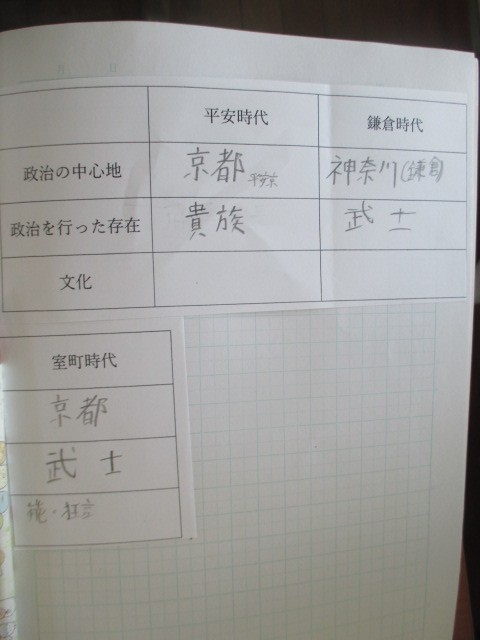 月 日
平安時代 鎌倉時代
政治の中心地 京都 平安京 神奈川(鎌倉)
政治を行った存在 貴族 武士
文化
室町時代
京都
武士
能・狂言